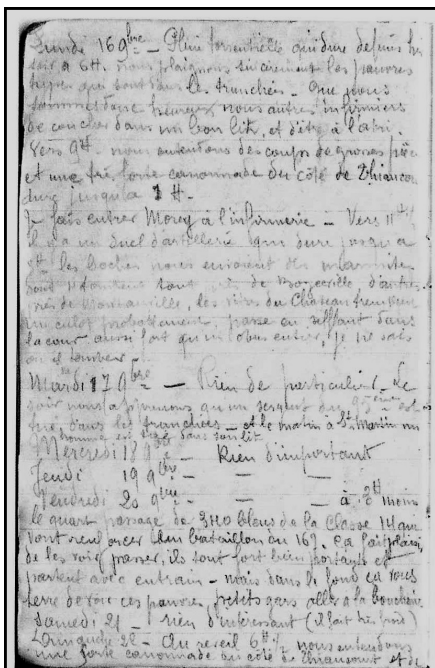 Lundi 16 9bre — Pluie torrentielle qui dure depuis hier
soir à 6H. nous plaignons sincèrement les pauvres
types qui sont dans les tranchées. Que nous
sommes donc heureux nous autres infirmiers
de coucher dans un bon lit, et d'être à l'abri.
Vers 9H nous entendons des coups de grosses pièces
et une très forte canonnade du côté de Thiaucourt
dure jusqu'à 1 H.
Je fais entrer Morey à l'infirmerie — Vers 11H
il y a un duel d'artillerie qui dure jusqu'à
les boches nous envoient des marmites
dont sont près de d'autres
près de les vitres du Château tremblent
un culot probablement, passe en sifflant dans
la cour, aussi fort qu'un obus entier, je ne sais
où il tombe.
Mardi 17 9bre — Rien de particulier. Le
soir nous apprenons qu'un sergent du
dans les tranchées — et le matin à St Martin un
homme est tué dans son lit
Mercredi 18 9bre — Rien d'important
Jeudi 19 9bre — —
Vendredi 20 9bre — — à 2H moins
le quart passage de 340 bleus de la classe 14 qui
vont renforcer un bataillon du 169. ça fait plaisir
de les voir passer, ils sont fort bien portants et
partent avec entrain — mais dans le fond ça vous
serre de voir ces pauvres petits gars aller à la boucherie
Samedi 21 — rien d'intéressant (il fait très froid)
Dimanche 22 — Au réveil 6H½ nous entendons
une forte canonnade du côté de et de